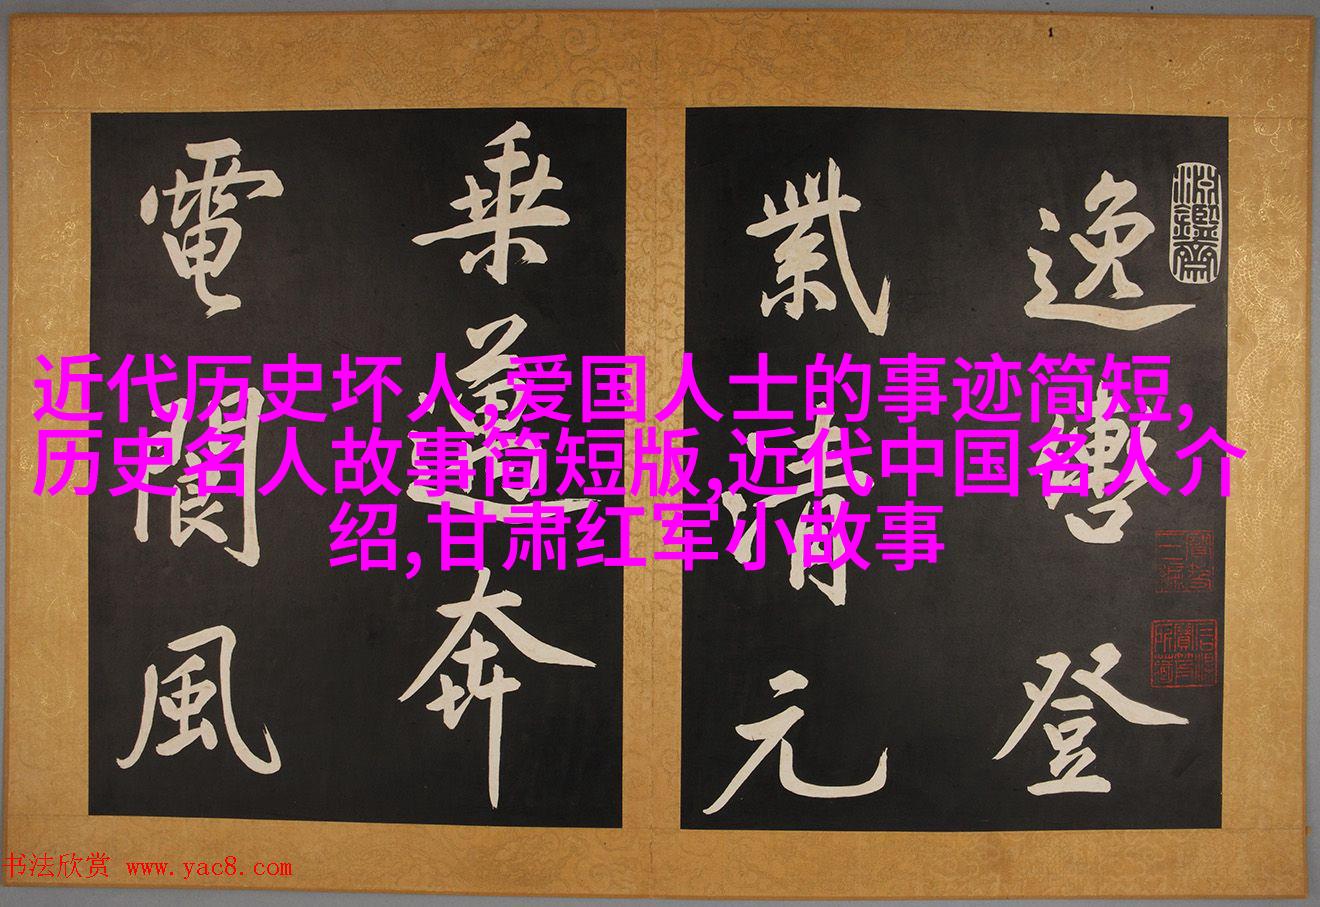 逸轡登
紫清元
乘遒奔
電閬風
近代历史坏人,爱国人士的事迹简短,
历史名人故事简短版,近代中国名人介
绍,甘肃红军小故事
书法欣赏 www.yac8.com